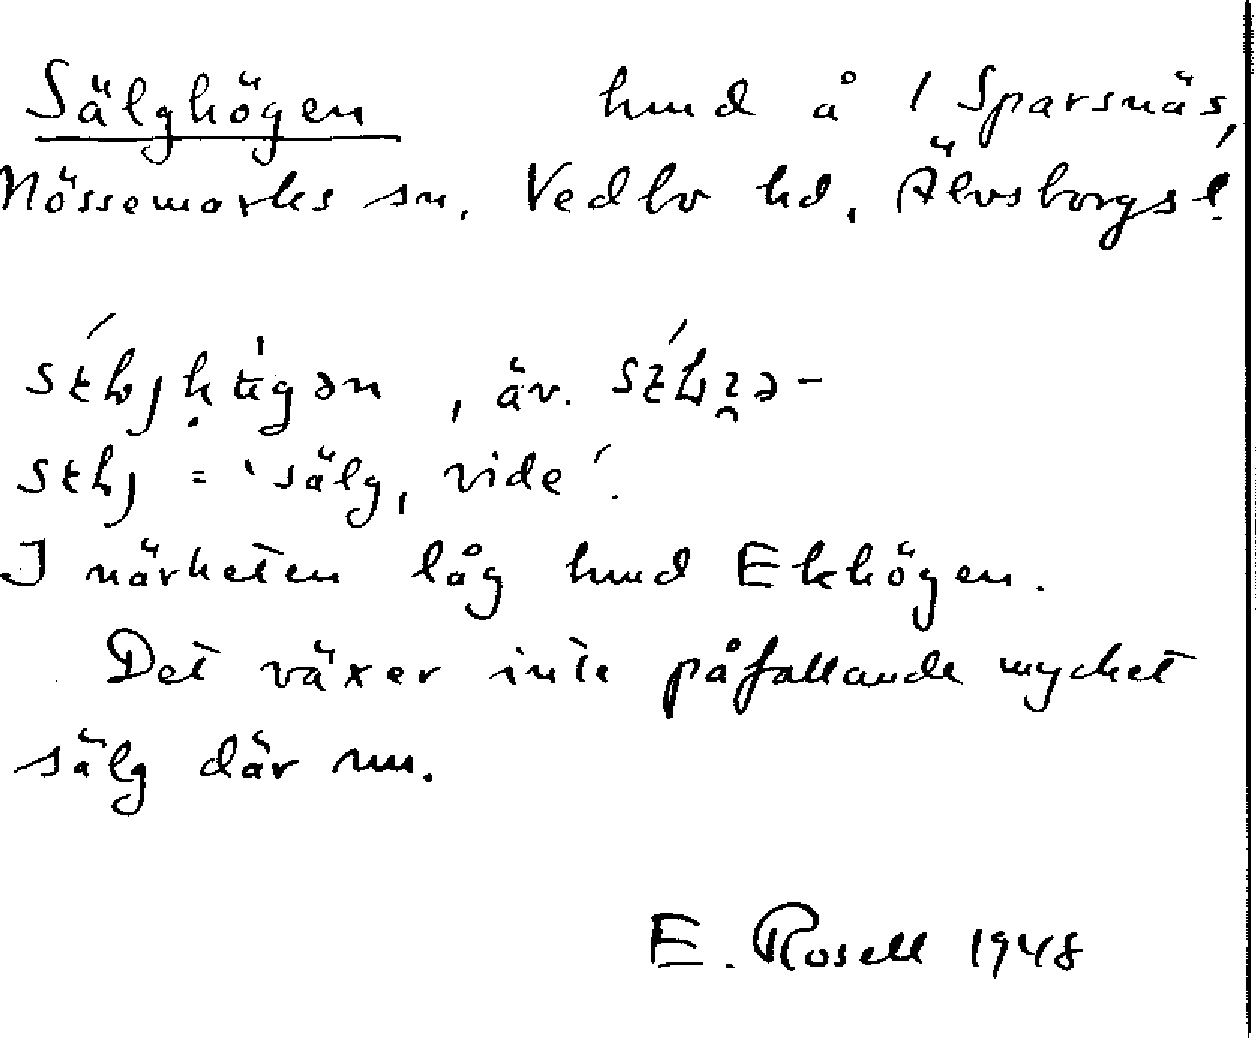 Sälghögen hmd å 1 Sparsnäs,
Nössemarks sn, Vedbo hd, Älvsborgs l.
, äv.
= 'sälg, vide'.
I närheten låg hmd Ekhögen.
Det växer inte påfallande mycket
sälg där nu.
E. Rosell 1948